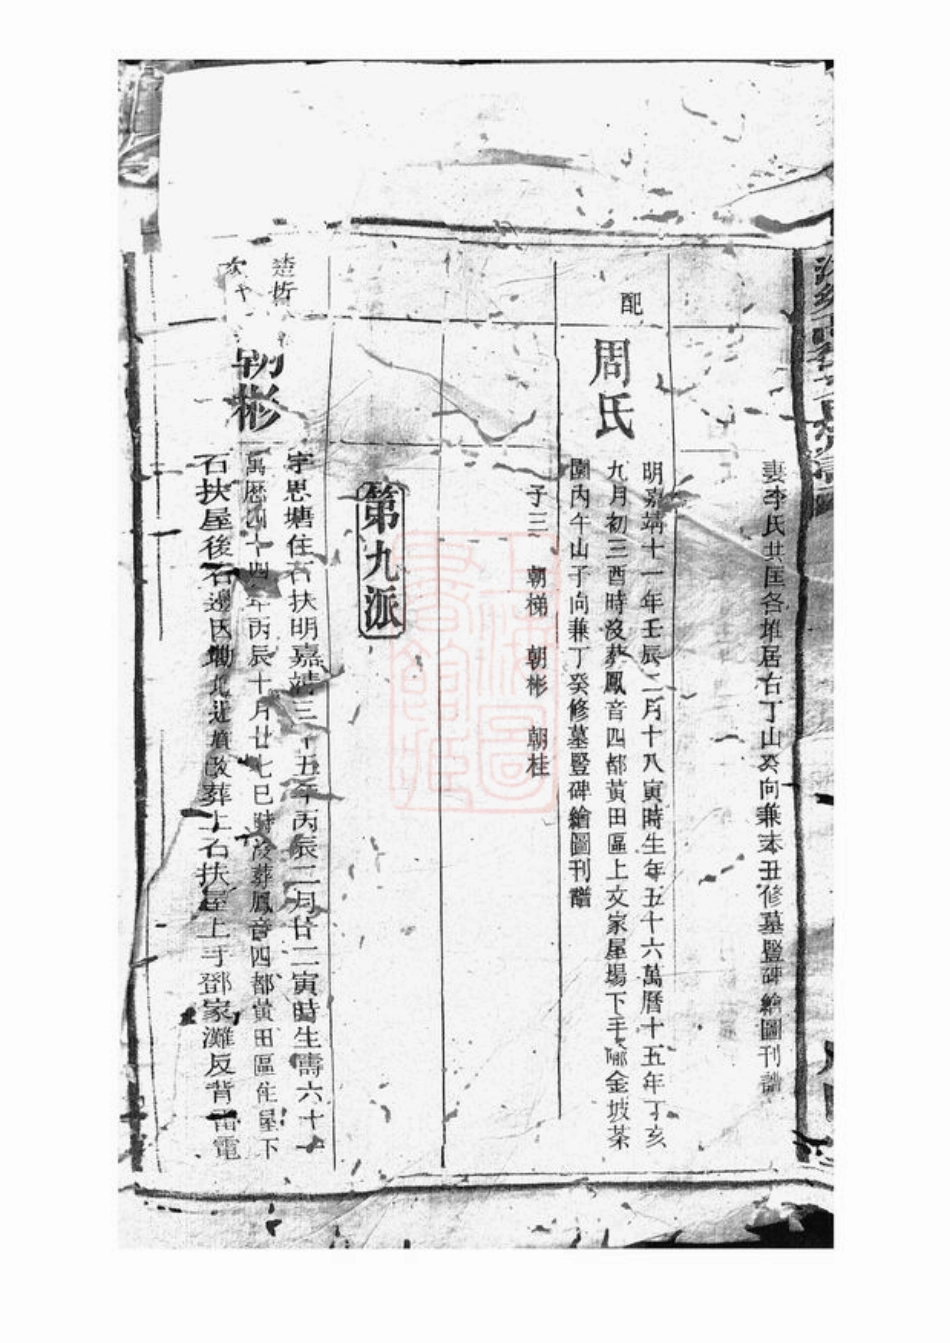 妻李氏共匡各堆居右丁山癸向兼未丑修墓豎碑繪圖刊譜
配
周氏
明嘉靖十一年壬辰二月十八寅時生年五十六萬曆十五年丁亥
九月初三酉時沒葬鳳音四都黃田區上文家屋場下手金坡茶
園內午山子向兼丁癸修墓豎碑繪圖刊譜
子三 朝梯 朝彬 朝桂
第九派
楚
次
朝彬
字思塘住石扶明嘉靖三十五年丙辰二月廿二寅時生壽六十一
萬歷四十四年丙辰十月廿七巳時沒葬鳳音四都黃田區住屋下
石扶屋後右邊因坳北近墳改葬上石扶屋上手鄧家灘反背雷電